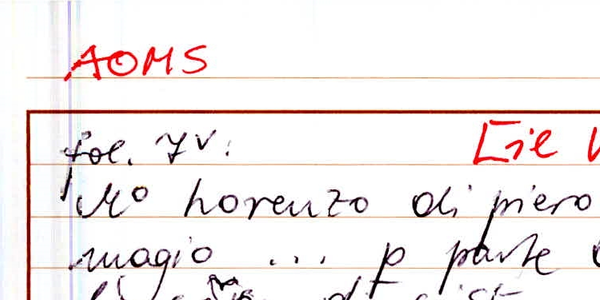 AOMS
fol. 7v: [il
Mo Lorenzo di piero
magio ... p parte